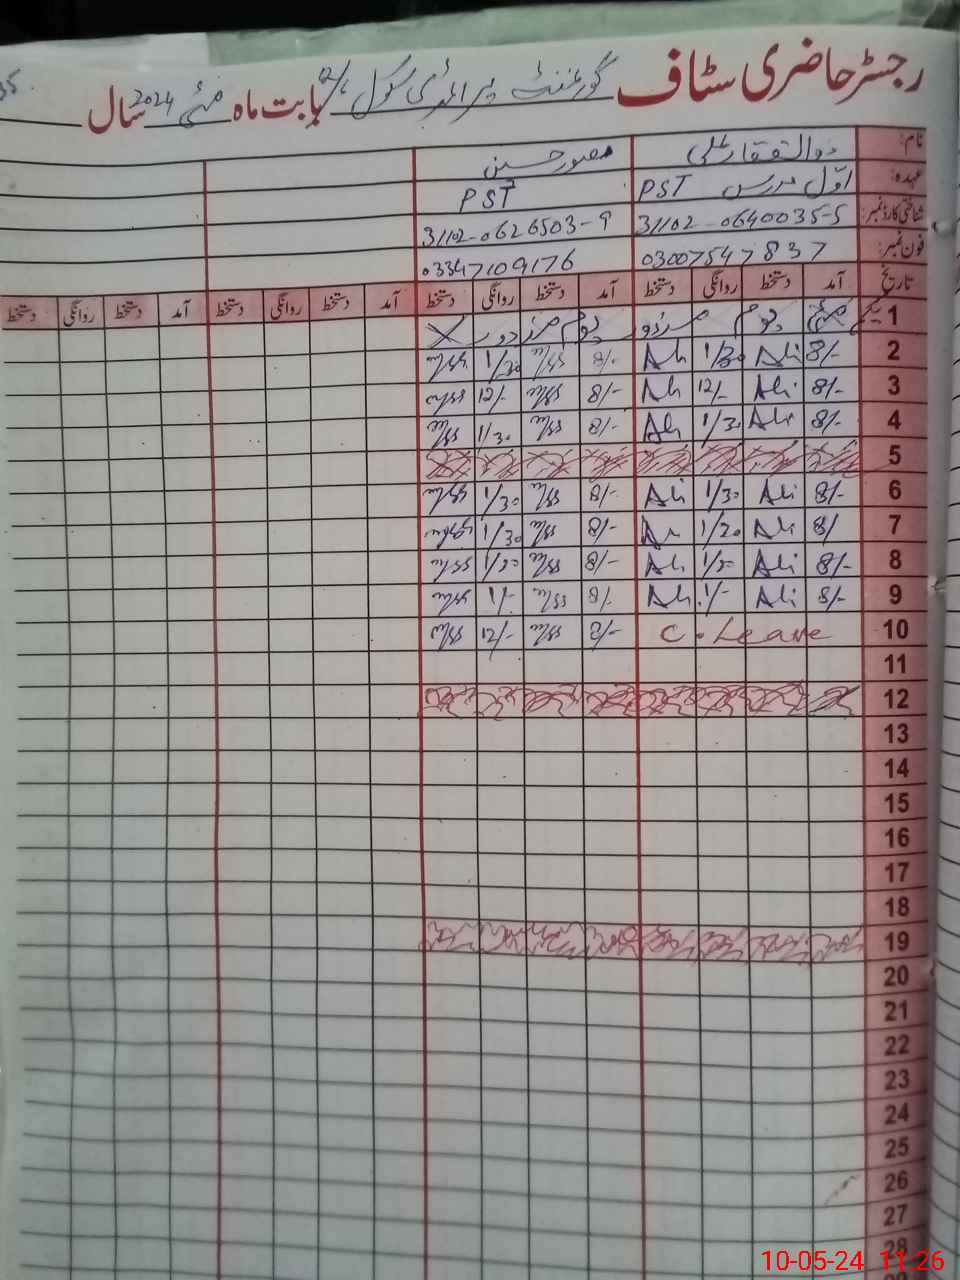 رجسٹر حاضری سٹاف گورنمنٹ پرائمری سکول بابت ماہ مئی 2024 سال
نام: ذوالفقار علی منصور حسین
عہدہ: اوّل مدرس PST PST
شناختی کارڈ نمبر: 31102-0640035-5 31102-0626503-9
فون نمبر: 03007547837 03347109176
تاریخ آمد دستخط روانگی دستخط آمد دستخط روانگی دستخط آمد دستخط روانگی دستخط آمد دستخط روانگی دستخط
1 یکم مئی یوم مزدور یوم مزدور
2 8/- Ali 1/30 Ali 8/- 1/30
3 8/- Ali 12/- Ali 8/- 12/-
4 8/- Ali 1/30 Ali 8/- 1/30
5
6 8/- Ali 1/30 Ali 8/- 1/30
7 8/ Ali 1/30 Ali 8/- 1/30
8 8/- Ali 1/30 Ali 8/- 1/30
9 8/- Ali 1/- Ali 8/- 1/-
10 C. Leave 8/- 12/-
11
12
13
14
15
16
17
18
19
20
21
22
23
24
25
26
27
28
10-05-24 11:26